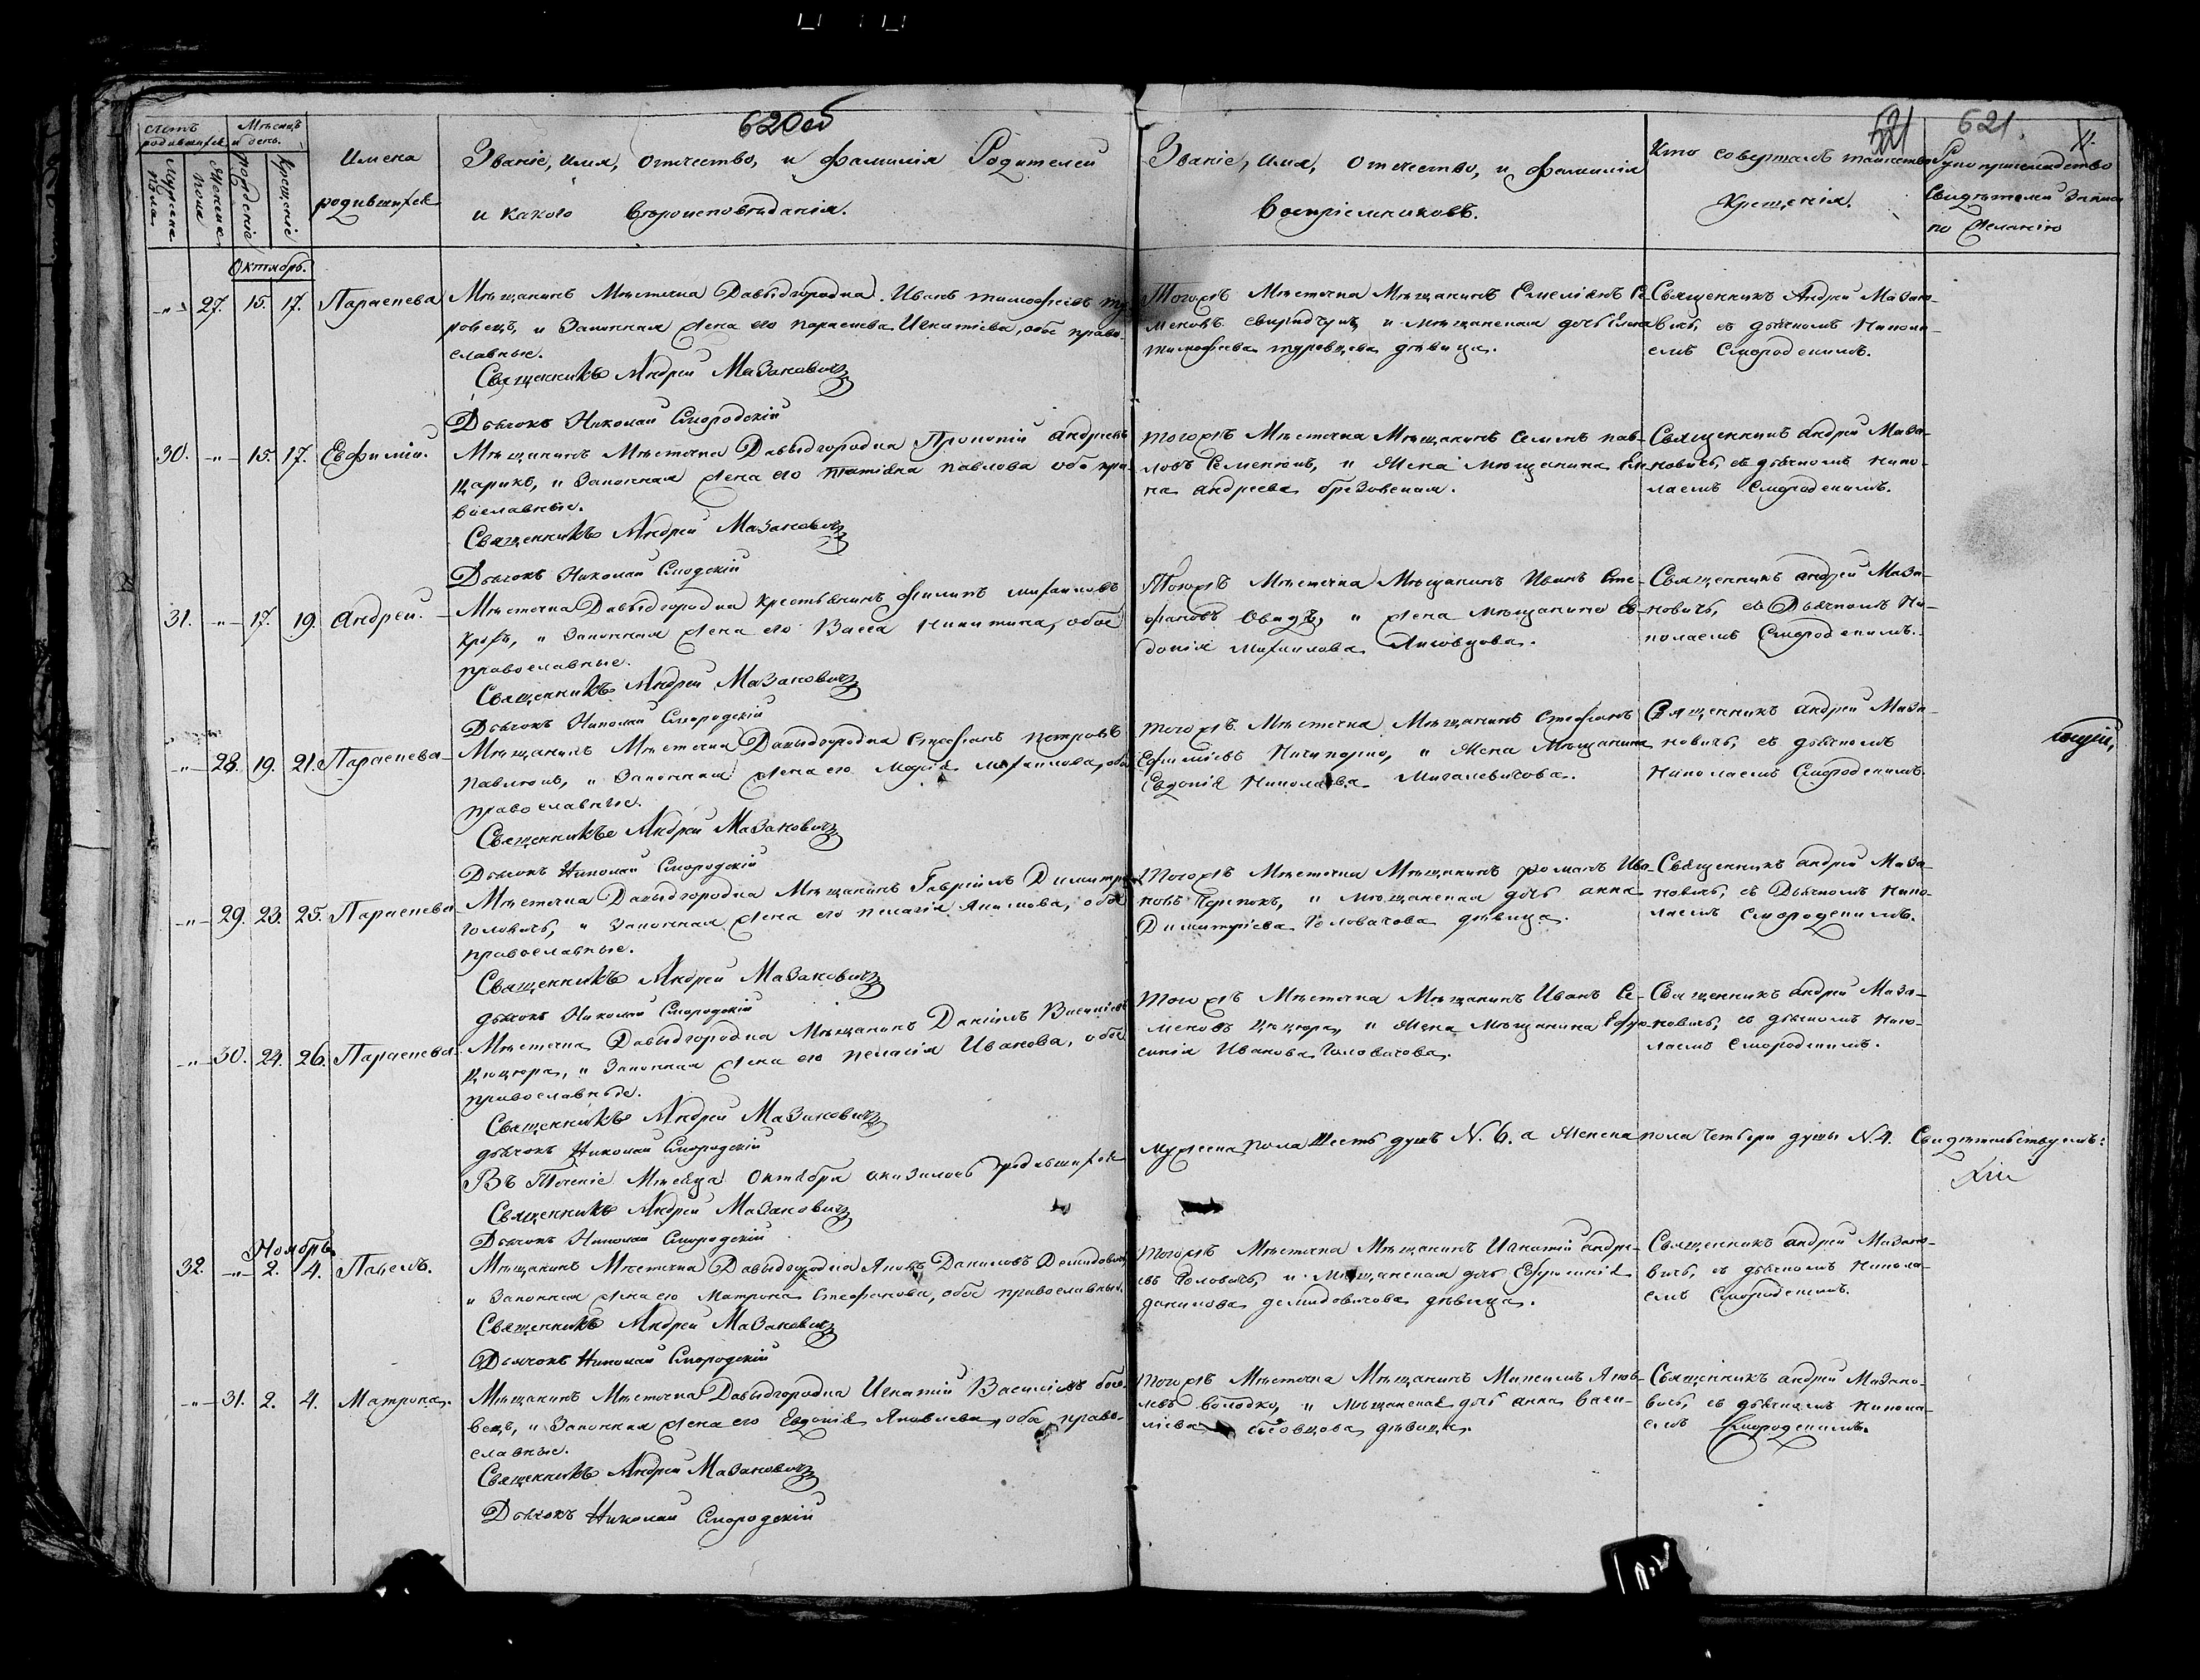 620об
621
621.
11.
Счетъ родившихся
Мѣсяцъ и день.
Мужеска пола
Женска пола
рожденіе
Крещеніе
Имена
родившихся
Званіе, имя, отчество, и фамилія Родителей
и какого вѣроисповѣданія.
Званіе, имя, отчество, и фамилія
Воспріемниковъ.
Кто совершалъ таинство
Крещенія.
Рукоприкладство
Свидѣтелей записи
по желанію
Октябрь.
-"- 27. 15. 17. Параскева
Мѣщанинъ Мѣстечка Давыдгородка Иванъ тимофеевъ ту-
ровецъ, и Законная жена его параскева Игнатіева, обое право-
славные.
Священникъ Андрей Мазановичъ
Дьячокъ Николай Смородскій
Тогожъ Мѣстечка Мѣщанинъ Емеліянъ Се-
меновъ и мѣщанская дочь Елена
тимофеева туровцова дѣвица.
Священникъ Андрей Мазано-
вичъ, съ дьячкомъ Никола-
емъ Смородскимъ.
30. -"- 15. 17. Евфимій.
Мѣщанинъ Мѣстечка Давыдгородка Прокопій андреевъ
царикъ, и Законная жена его павлова обое пра-
вославные.
Священникъ Андрей Мазановичъ
Дьячокъ Николай Смодскій
тогожъ Мѣстечка Мѣщанинъ Семенъ пав-
ловъ Семенюкъ, и Жена мѣщанина Еле-
на андреева брезовская.
Священникъ андрей Маза-
новичъ, съ дьячкомъ Нико-
лаемъ Смородскимъ.
31. -"- 17. 19. Андрей.
Мѣстечка Давыдгородка крестьянинъ филипъ михаиловъ
и Законная жена его Васса Никитина, обое
православные.
Священникъ Андрей Мазановичъ
Дьячокъ Николай Смородскій
Тогожъ Мѣстечка Мѣщанинъ Иванъ Сте-
фановъ и жена мѣщанина Ев-
докія Михаилова Лисовцова.
Священникъ андрей Маза-
новичъ, съ Дьячкомъ Ни-
колаемъ Смородскимъ.
-"- 28. 19. 21. Параскева
Мѣщанинъ Мѣстечка Давыдгородка Стефанъ петровъ
Павлюкъ, и Законная жена его Марія михаилова, обое
православные.
Священникъ Андрей Мазановичъ
Дьячокъ Николай Смородскій
тогожъ Мѣстечка Мѣщанинъ Стефанъ
Ефимовъ Ничипорко, и Жена Мѣщанина
Евдокія Николаева Мигалевичова.
Священникъ андрей Маза-
новичъ, съ дьячкомъ
Николаемъ Смородскимъ.
-"- 29. 23. 25. Параскева
Мѣстечка Давыдгородка Мѣщанинъ Гавріилъ Димитрі-
головачъ, и Законная жена его пелагія Якимова, обое
православные.
Священникъ Андрей Мазановичъ
дьячокъ Николай Смородскій
тогожъ Мѣстечка Мѣщанинъ романъ Ива-
новъ Черепокъ, и мѣщанская дочь анна
Димитріева Головачова дѣвица.
Священникъ андрей Маза-
новичъ, съ Дьячкомъ Нико-
лаемъ смородскимъ.
-"- 30. 24. 26. Параскева
Мѣстечка Давыдгородка Мѣщанинъ Даніилъ Василіевъ
Цюцюра, и Законная жена его пелагія Иванова, обое
православные.
Священникъ Андрей Мазановичъ
дьячокъ Николай Смородскій
тогожъ Мѣстечка Мѣщанинъ Иванъ Се-
меновъ Цюцюра, и Жена Мѣщанина Ефро-
синія Иванова Головачова.
Священникъ андрей Маза-
новичъ, съ дьячкомъ Нико-
лаемъ Смородскимъ.
Въ Теченіе Мѣсяца Октября оказалось родившихся
мужеска пола Шесть душъ N. 6. а Женска пола Четыри души N. 4. Свидѣтельствуемъ:
Священникъ Андрей Мазановичъ
Дьячокъ Николай Смородскій
Ноябрь.
32. -"- 2. 4. Павелъ.
Мѣщанинъ Мѣстечка Давыдгородка Яковъ Даниловъ Демидовичъ
и Законная жена его Матрона Стефанова, обое православные.
Священникъ Андрей Мазановичъ
Дьячокъ Николай Смородскій
тогожъ Мѣстечка Мѣщанинъ Игнатій андре-
евъ Головачъ, и Мѣщанская дочь Ефросинія
данилова демидовичова дѣвица.
Священникъ андрей Мазано-
вичъ, съ дьячкомъ Никола-
емъ Смородскимъ.
-"- 31. 2. 4. Матрона.
Мѣщанинъ Мѣстечка Давыдгородка Игнатій Василіевъ босо-
вецъ, и Законная жена его Евдокія Яковлева, обое право-
славные.
Священникъ Андрей Мазановичъ
Дьячокъ Николай Смородскій
тогожъ Мѣстечка Мѣщанинъ Максимъ Яков-
левъ володко, и мѣщанская дочь анна васи-
ліева босовцова дѣвица.
Священникъ андрей Мазано-
вичъ, съ дьячкомъ Никола-
емъ Смородскимъ.